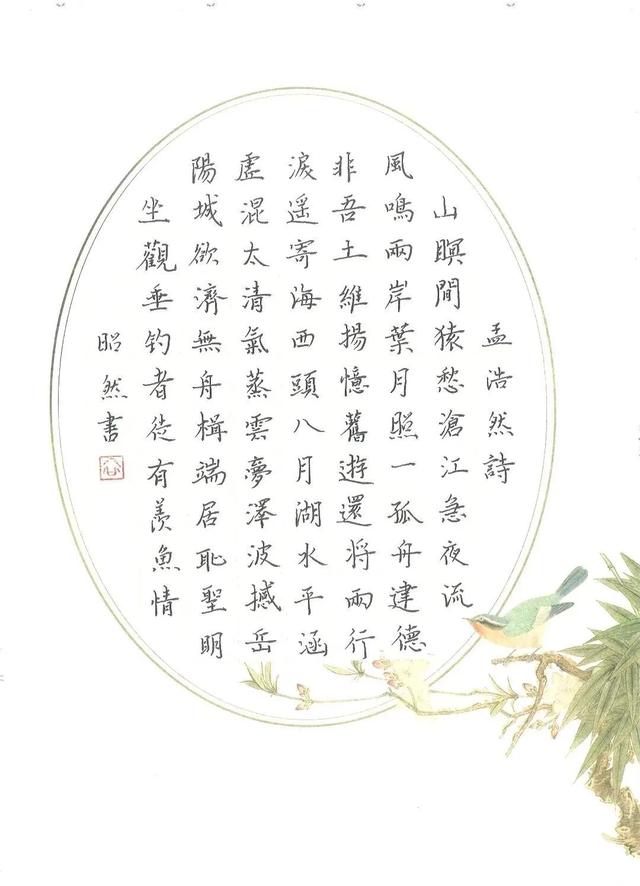 孟浩然詩
山暝聞猿愁滄江急夜流
風鳴兩岸葉月照一孤舟建德
非吾土維揚憶舊遊還將兩行
淚遥寄海西頭八月湖水平涵
虛混太清氣蒸雲夢澤波撼岳
陽城欲濟無舟楫端居恥聖明
坐觀垂钓者徒有羨魚情
昭然書